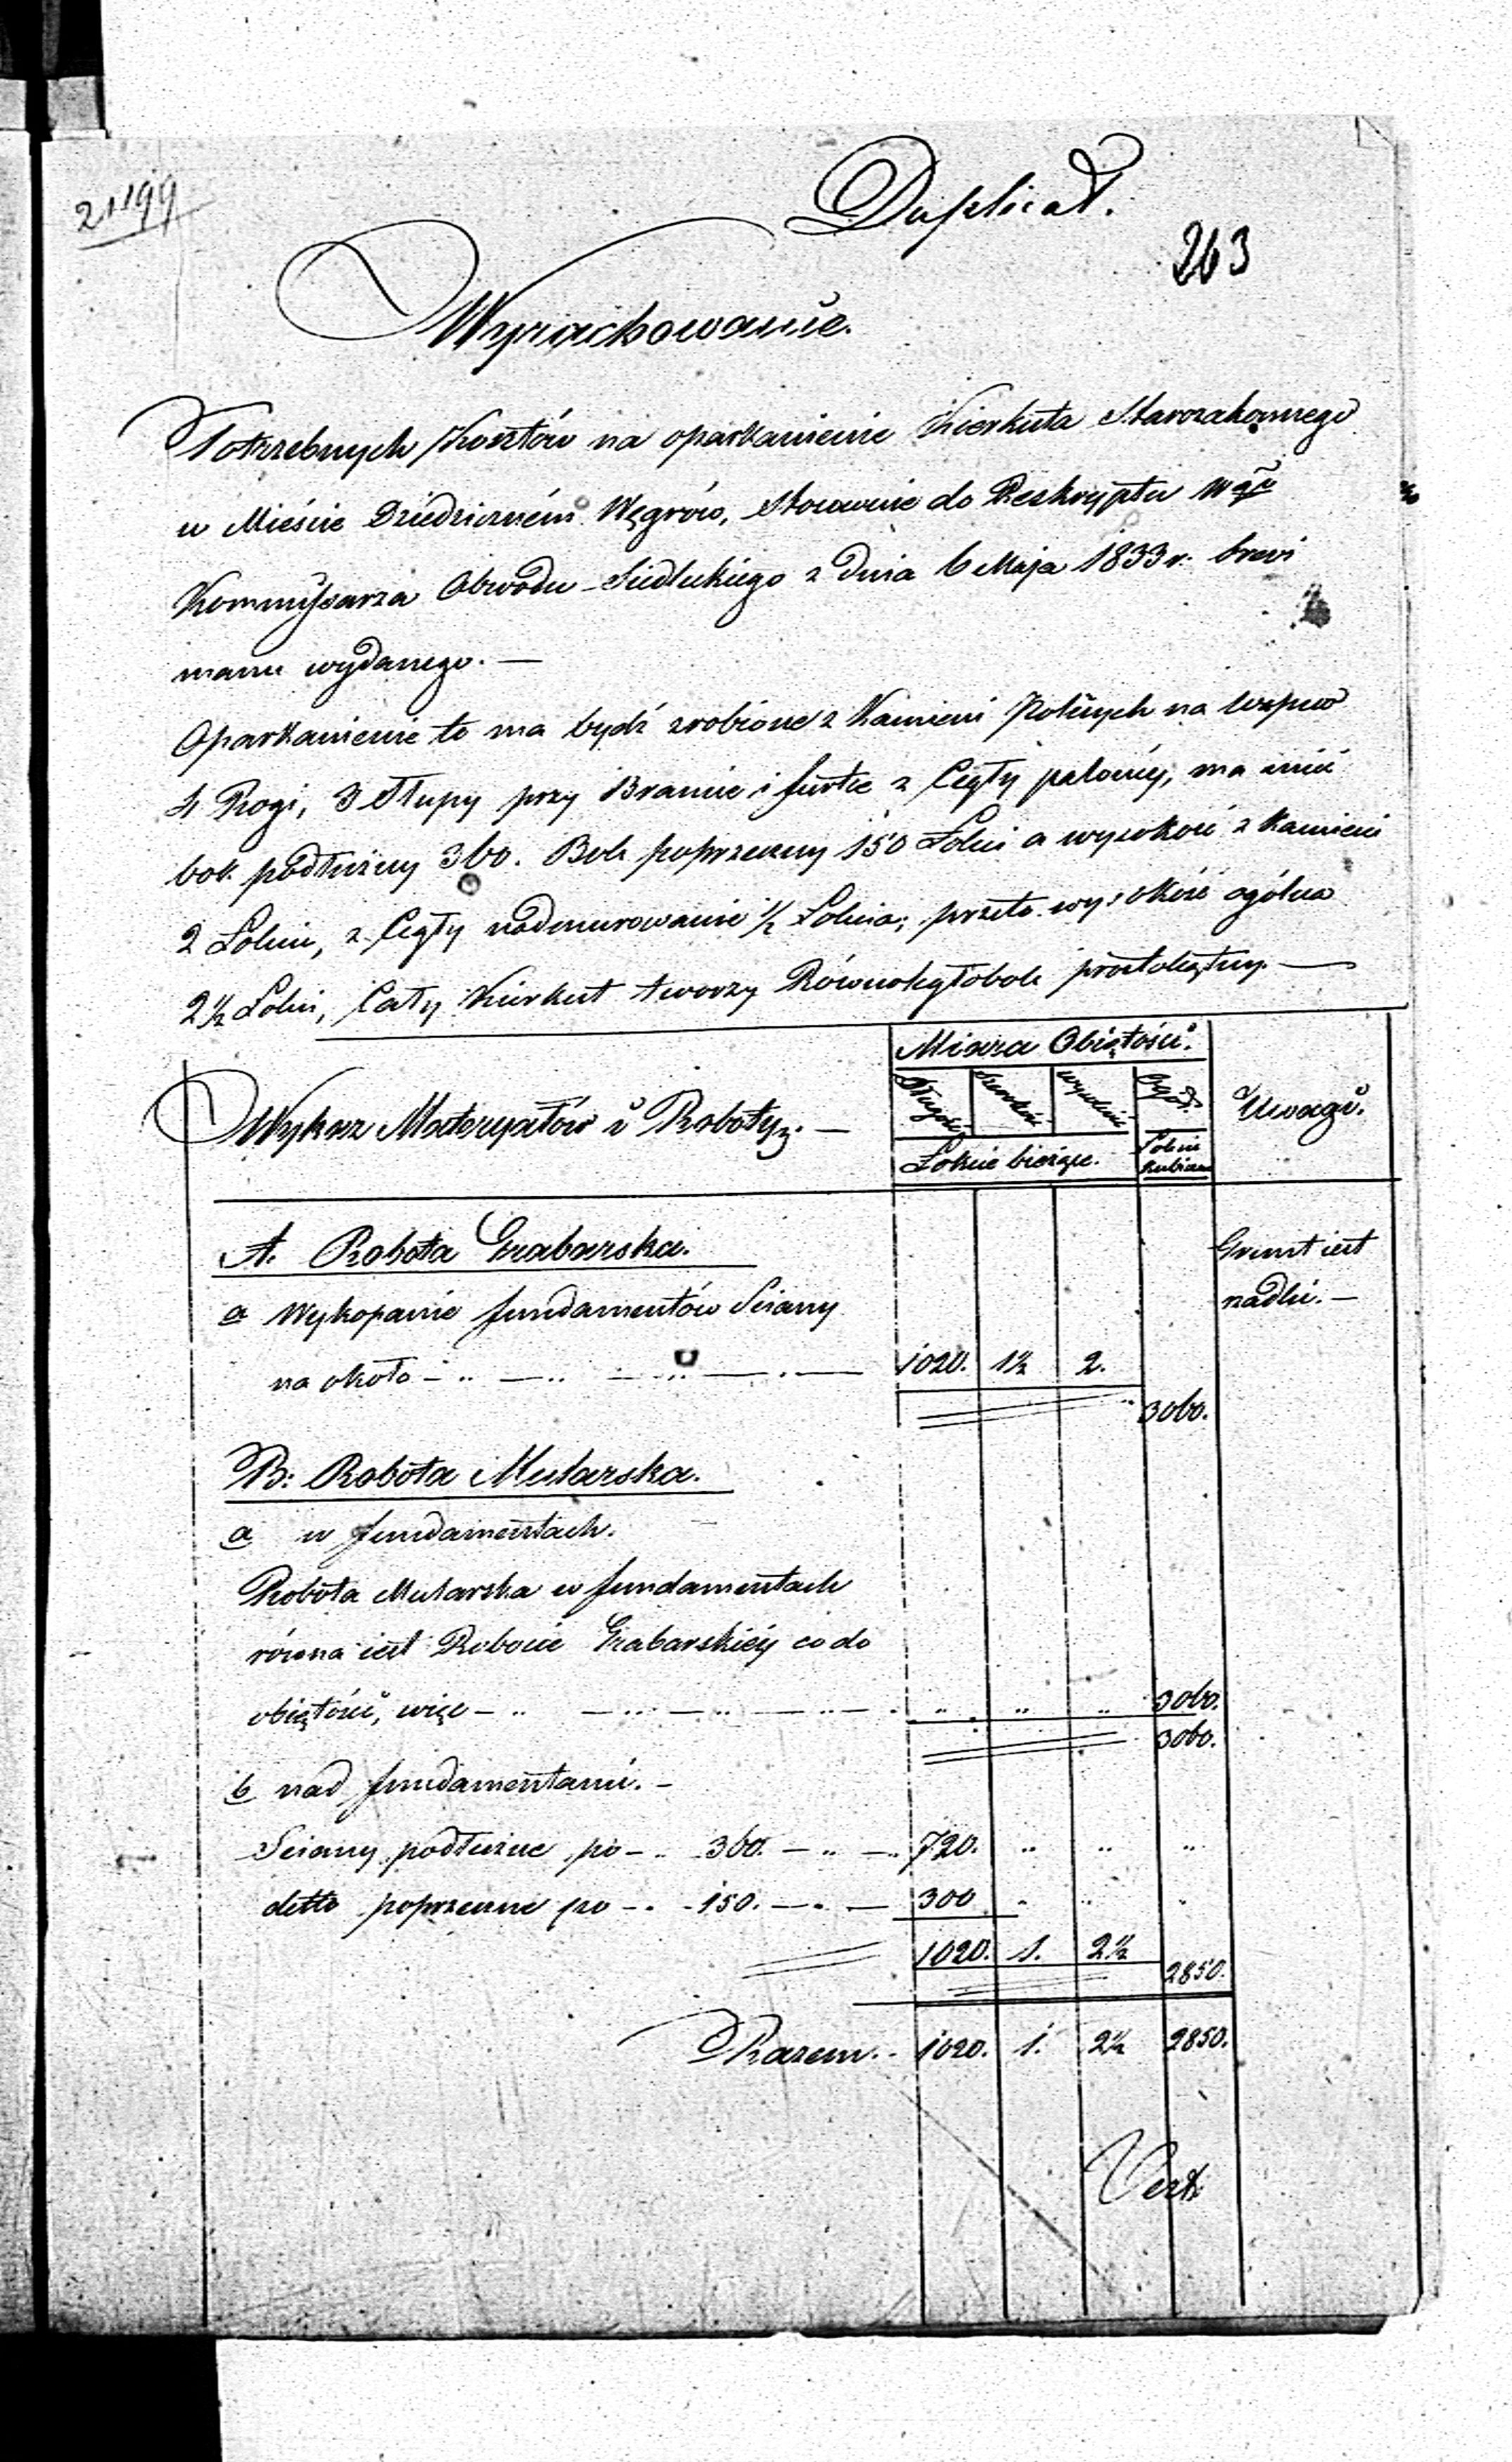 Duplicat.
263
Wyrachowanie.
Potrzebnych Kosztów na oparkanienie Kierkuta Starozakonnego
w Mieście Dziedziczném Węgrów, Stosownie do Reskryptu
Kommissarza Obwodu Siedleckiego z dnia 6 Maja 1833 r. brevi
manu wydanego. —
Oparkanienie to ma bydź zrobione z Kamieni Polnych na Wapno
4 Rogi, 3 Słupy przy Bramie i furtce z Cegły palonéy, ma mieć
bok podłużny 360. Bok poprzeczny 150 Łokci a wysokość z Kamieni
2 Łokcie, z Cegły nadmurowanie ½ Łokcia; przeto wysokość ogólna
2½ Łokci, Cały Kierkut tworzy Równoległobok prostokątny. —
Miara Obiętości.
Wykaz Materyałów i Roboty. —
Długość
Szerokość
wysokość
Uwagi.
Łokcie bieżące.
Łokcie
Kubiczne
A. Robota Grabarska.
Grunt iest
a Wykopanie fundamentów Sciany
na około 1020. 1½ 2.
3060.
B: Robota Mularska.
a w fundamentach.
Robota Mularska w fundamentach
równa iest Robocie Grabarskiéy co do
obiętości, więc 3060.
3060.
b nad fundamentami. —
Sciany podłużne po 360. 720.
detto poprzeczne po 150. 300
1020. 1. 2½
2850.
Razem. 1020. 1. 2½ 2850.
Vert